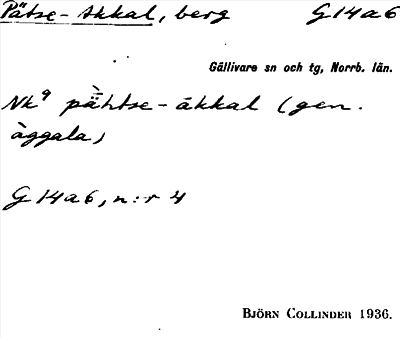 Pätse-Akkal, berg G14a6
Gällivare sn och tg, Norrb. län.
Nk9 pä̀htse-ákkal (gen.
àggala)
G14a6, n:r 4
BJÖRN COLLINDER 1936.